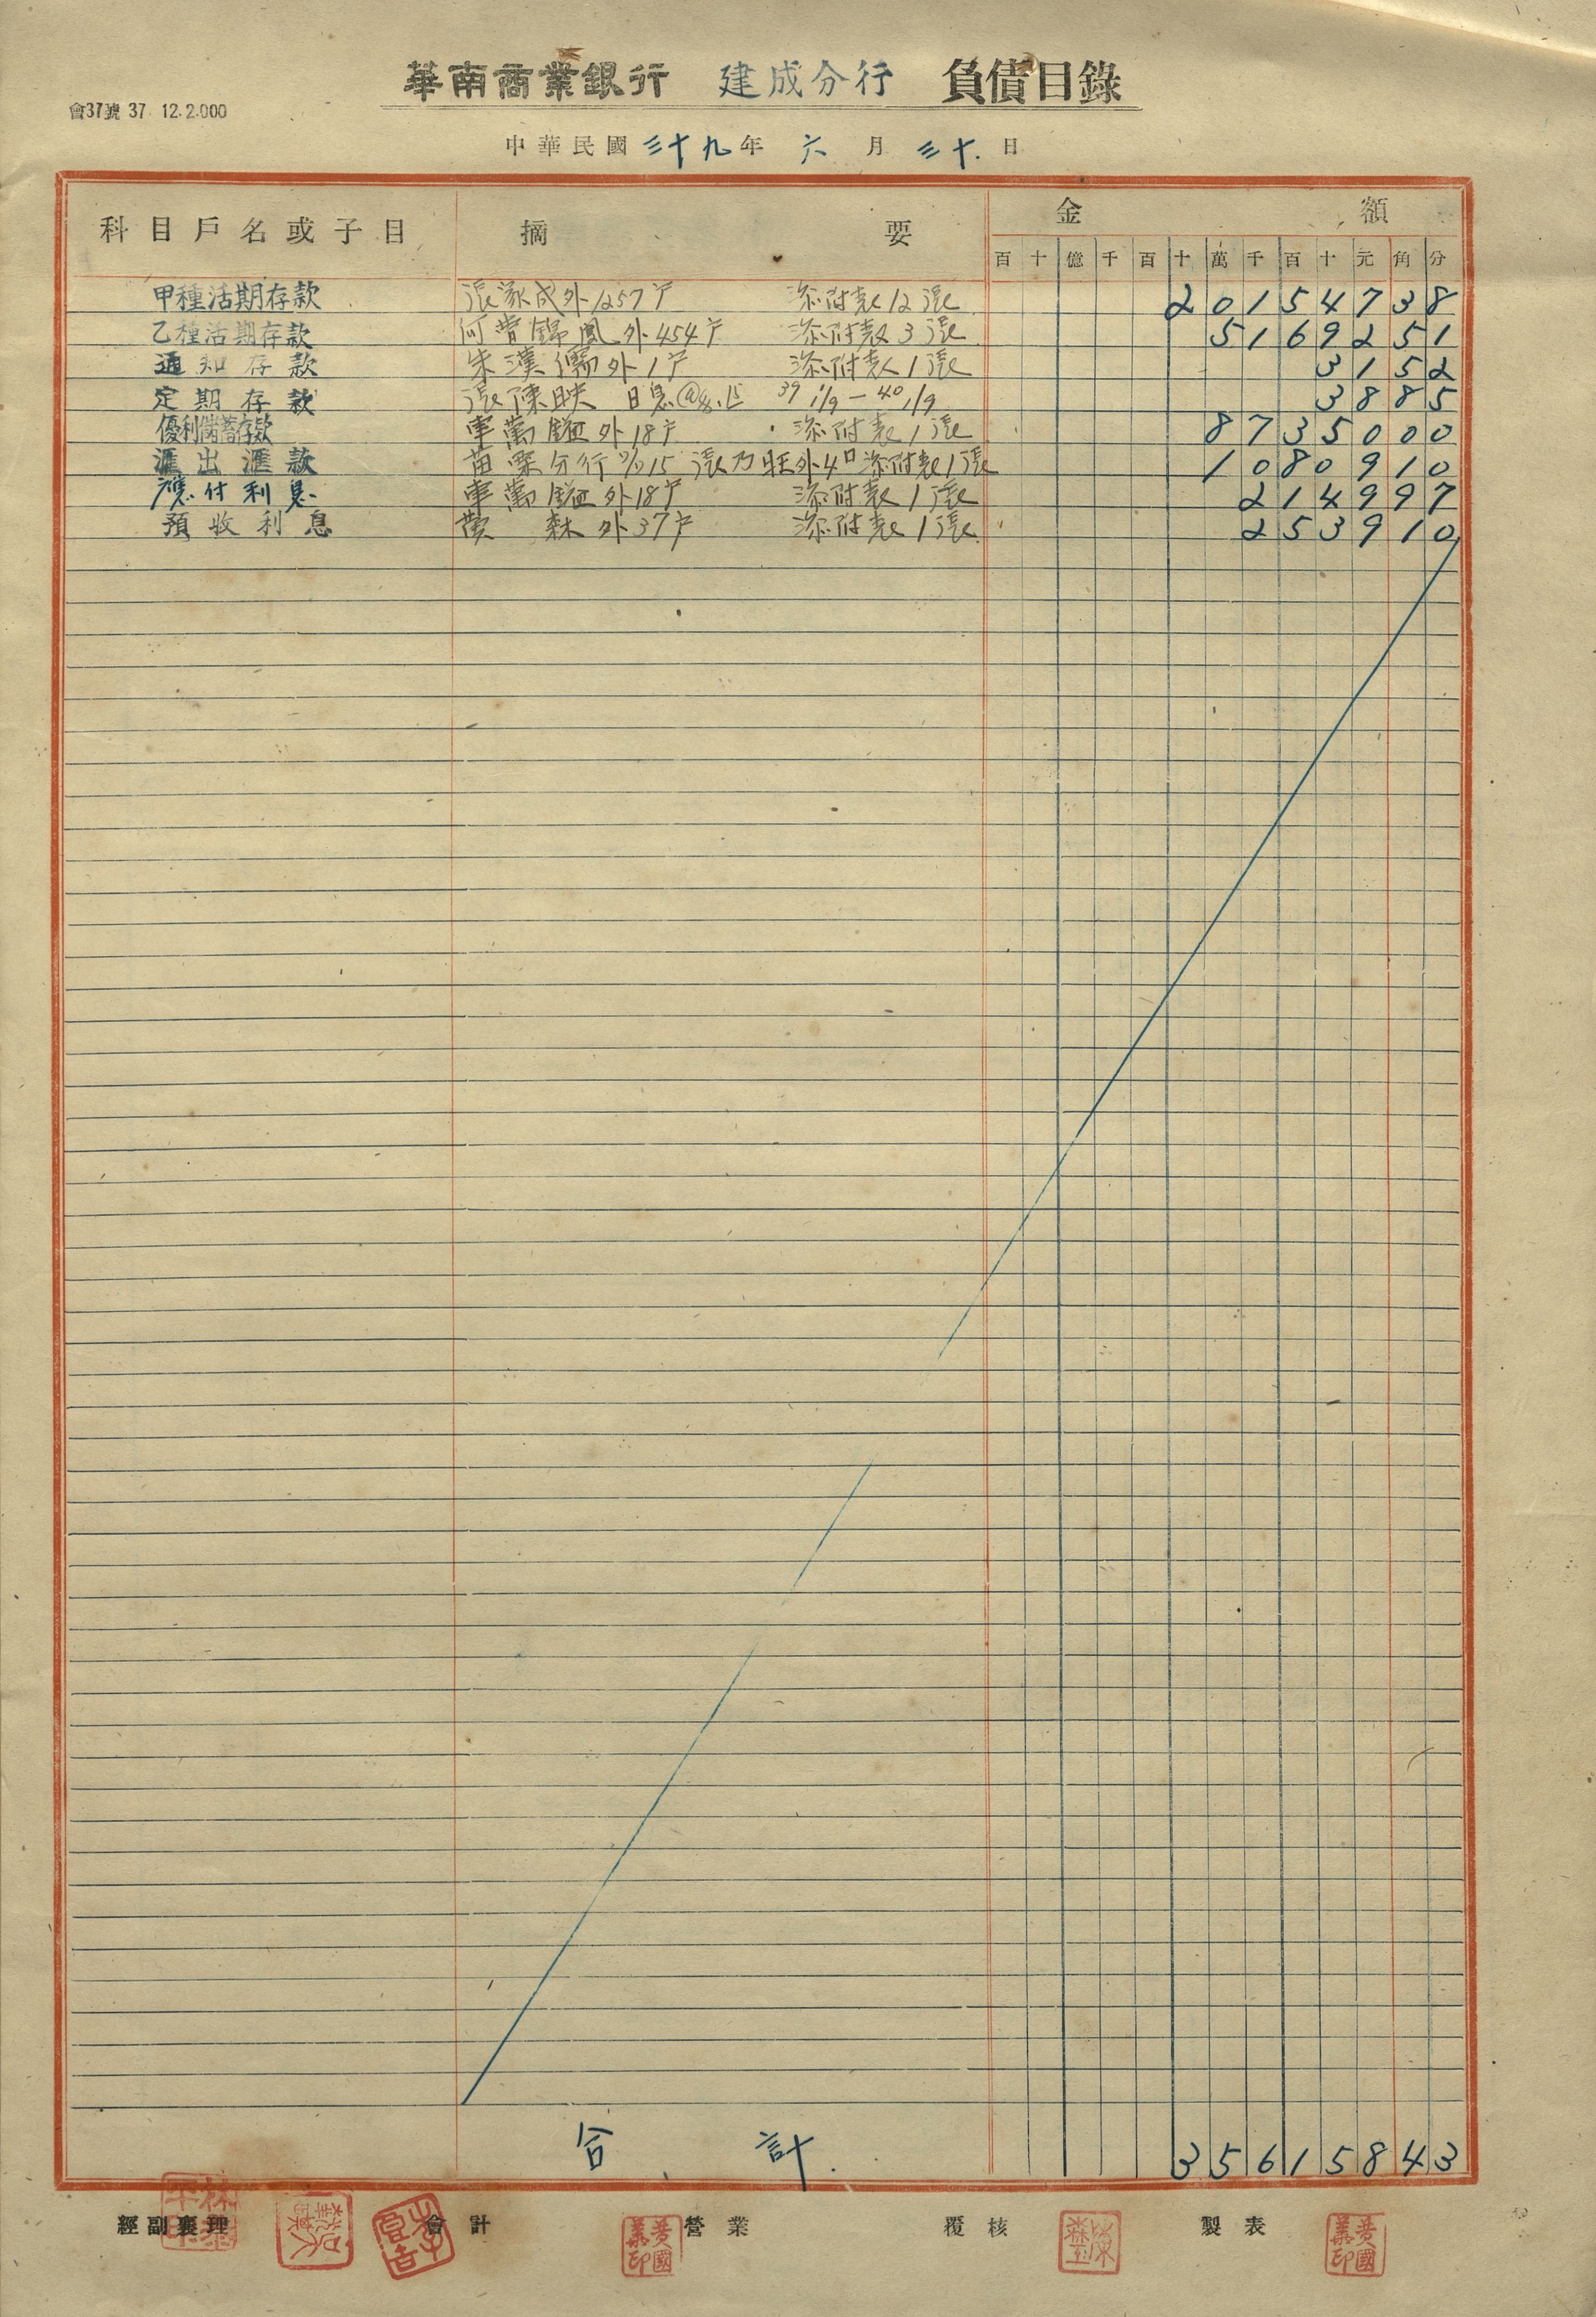 華南商業銀行 建成分行 負債目錄
會37號 37. 12.2.000
中華民國三十九年六月三十日
科目戶名或子目 摘要 金額
百十億千百十萬千百十元角分
甲種活期存款 張家成外1257戶 添附表12張 20154738
乙種活期存款 何曾錦鳳外454戶 添附表3張 5169251
通知存款 朱漢儒外1戶 添附表1張 3152
定期存款 張陳映 日息 39 1/9 — 40 1/9 3885
優利儲蓄存款 車萬鎰外18戶 添附表1張 8735000
滙出滙款 苗栗分行 15 張乃旺外4口添附表1張 1080910
應付利息 車萬鎰外18戶 添附表1張 214997
預收利息 黃森外37戶 添附表1張 253910
合計 35615843
經副襄理 會計 營業 覆核 製表
黃國義印 黃國義印